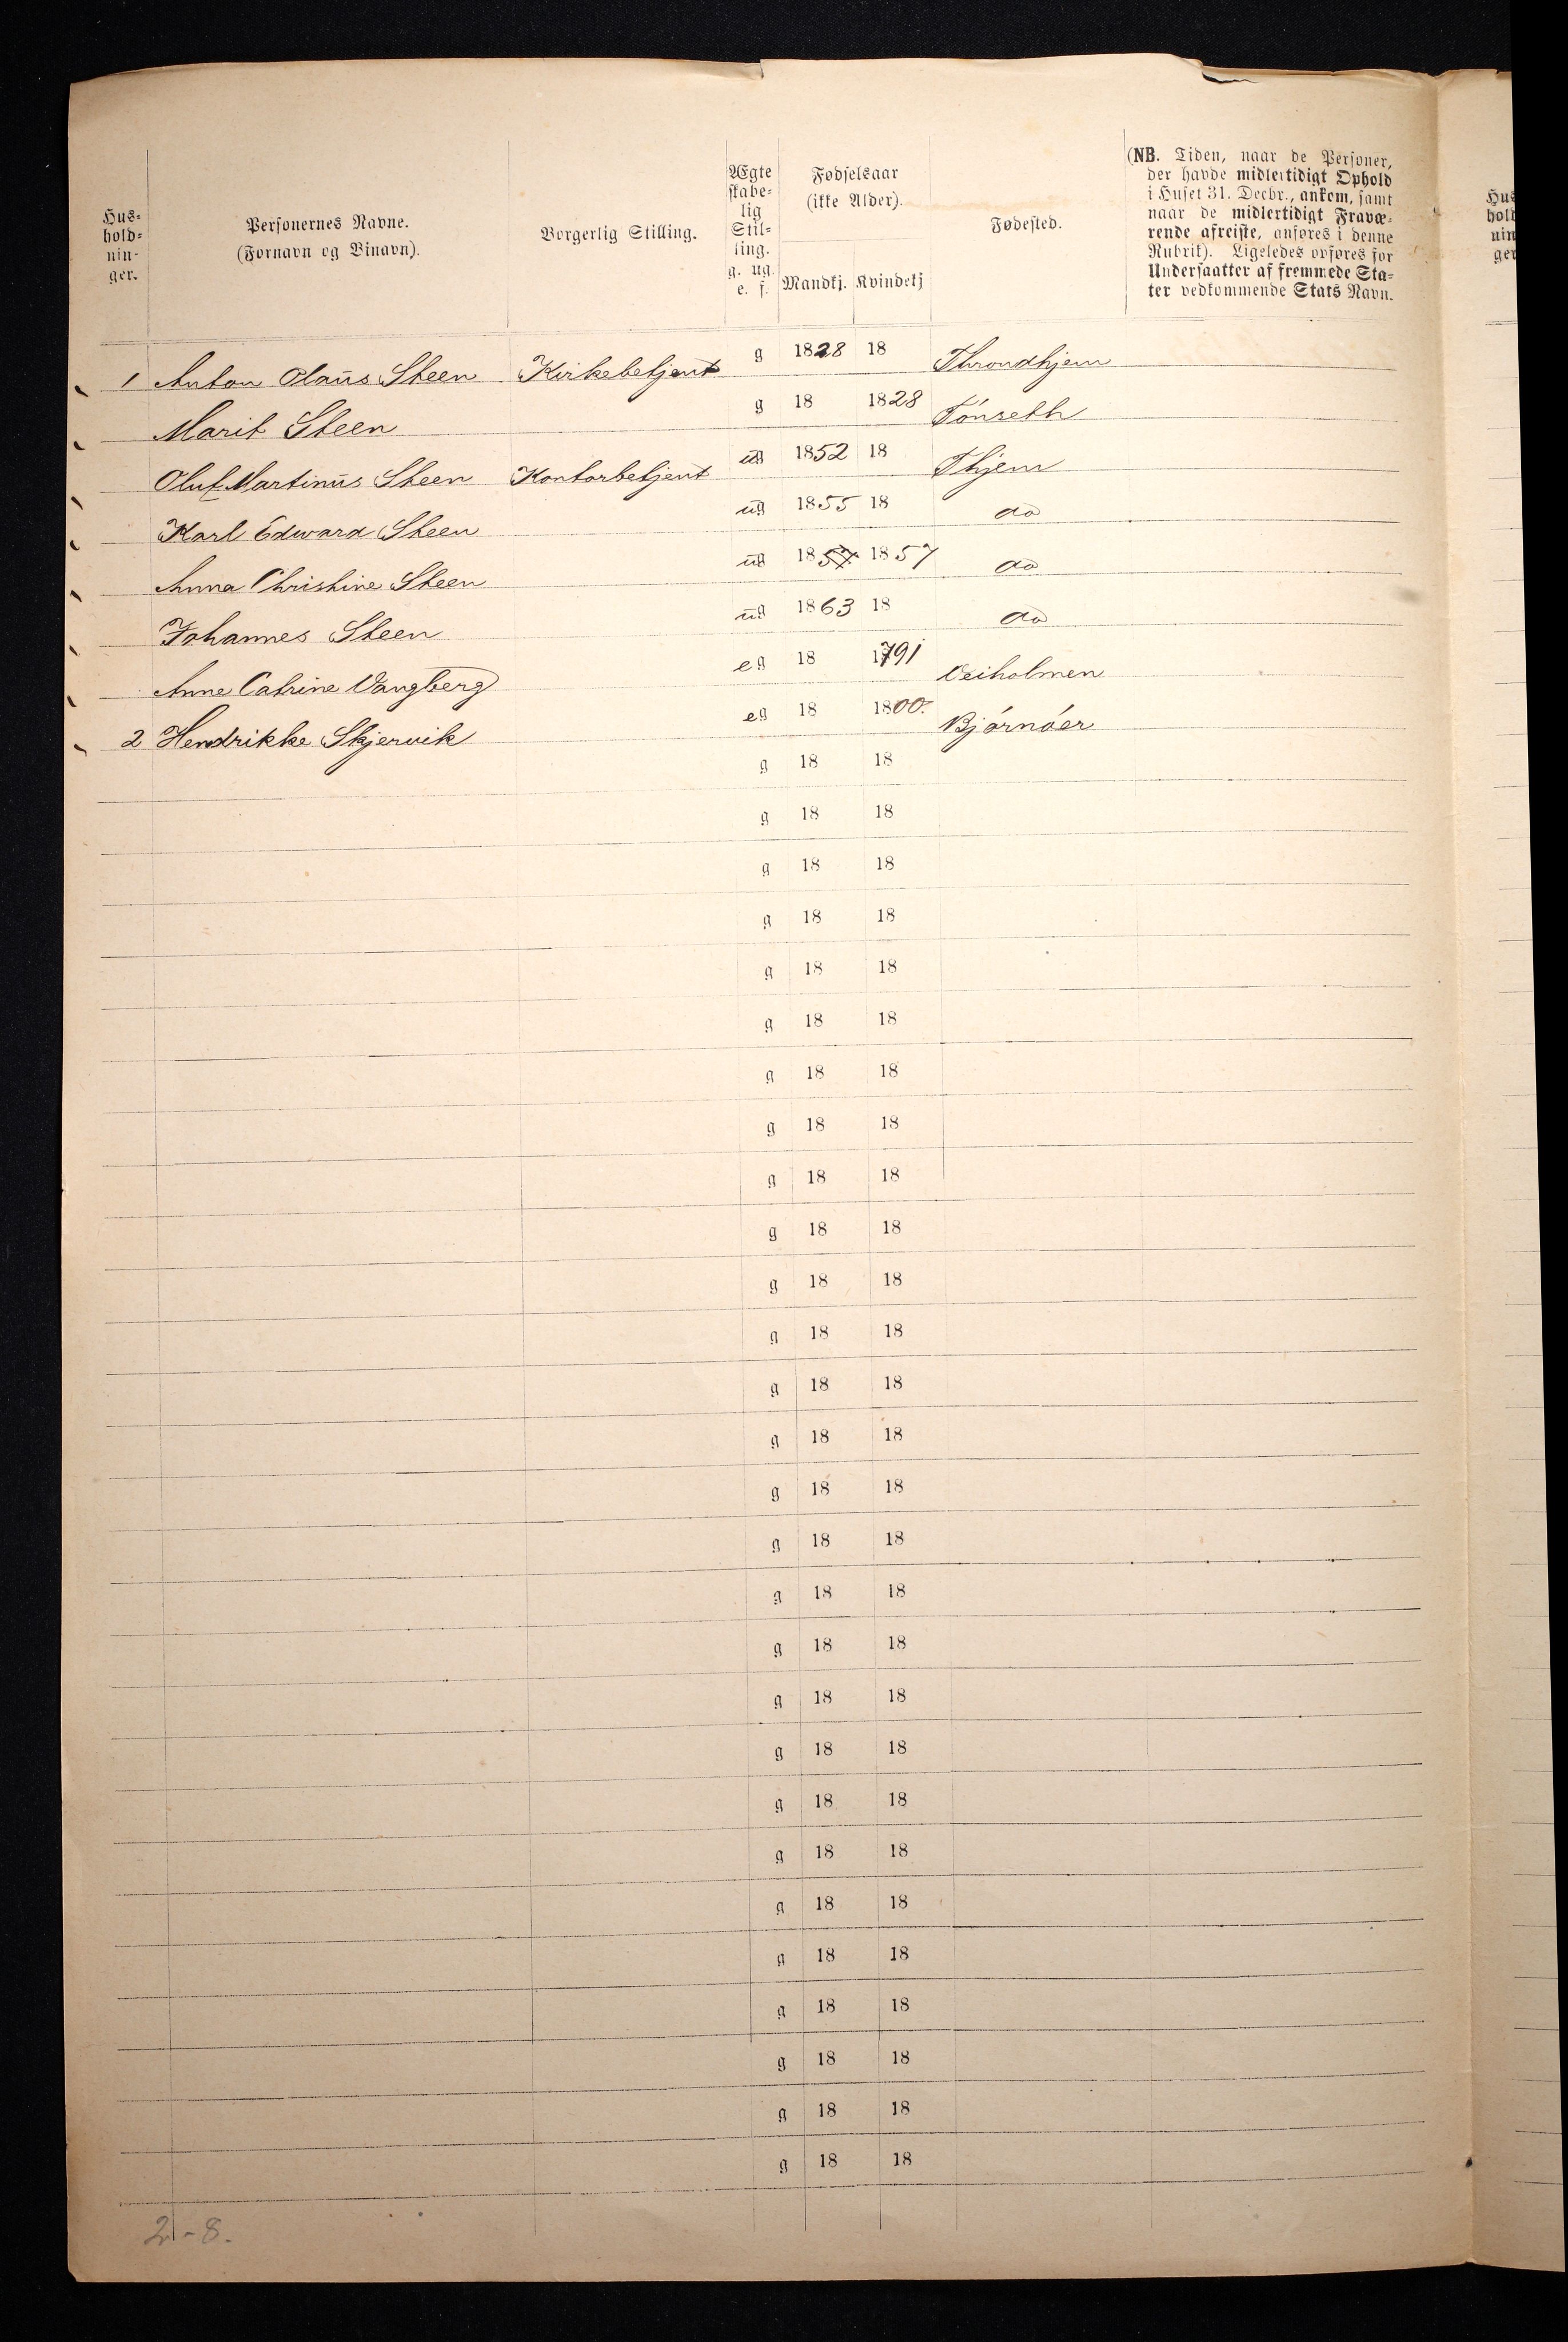 Hus-
hold-
nin-
ger.
Personernes Navne.
(Fornavn og Binavn).
Borgerlig Stilling.
Ægte
skabe-
lig
Stil-
ling.
g. ug.
e. f.
Fødselsaar
(ikke Alder).
Mandkj. Kvindekj
Fødested.
(NB. Tiden, naar de Personer,
der havde midlertidigt Ophold
i Huset 31. Decbr., ankom, samt
naar de midlertidigt Fravæ-
rende afreiste, anføres i denne
Rubrik). Ligeledes opføres for
Undersaatter af fremmede Sta-
ter vedkommende Stats Navn.
1 Anton Olaus Steen Kirkebetjent g 1828 18 Throndhjem
Marit Steen g 18 1828 Tónseth
Oluf Martinus Steen Kontorbetjent ug 1852 18 Thjem
Karl Edward Steen ug 1855 18 do
Anna Christine Steen ug 1857 1857 do
Johannes Steen ug 1863 18 do
Anne Catrine Vangberg eg 18 1791 Veiholmen
2 Hendrikke Skjervik eg 18 1800. Bjórnóer
g 18 18
g 18 18
g 18 18
g 18 18
g 18 18
g 18 18
g 18 18
g 18 18
g 18 18
g 18 18
g 18 18
g 18 18
g 18 18
g 18 18
g 18 18
g 18 18
g 18 18
g 18 18
g 18 18
g 18 18
g 18 18
g 18 18
g 18 18
g 18 18
g 18 18
g 18 18
g 18 18
g 18 18
2-8.
Hus
hold
nin
ger